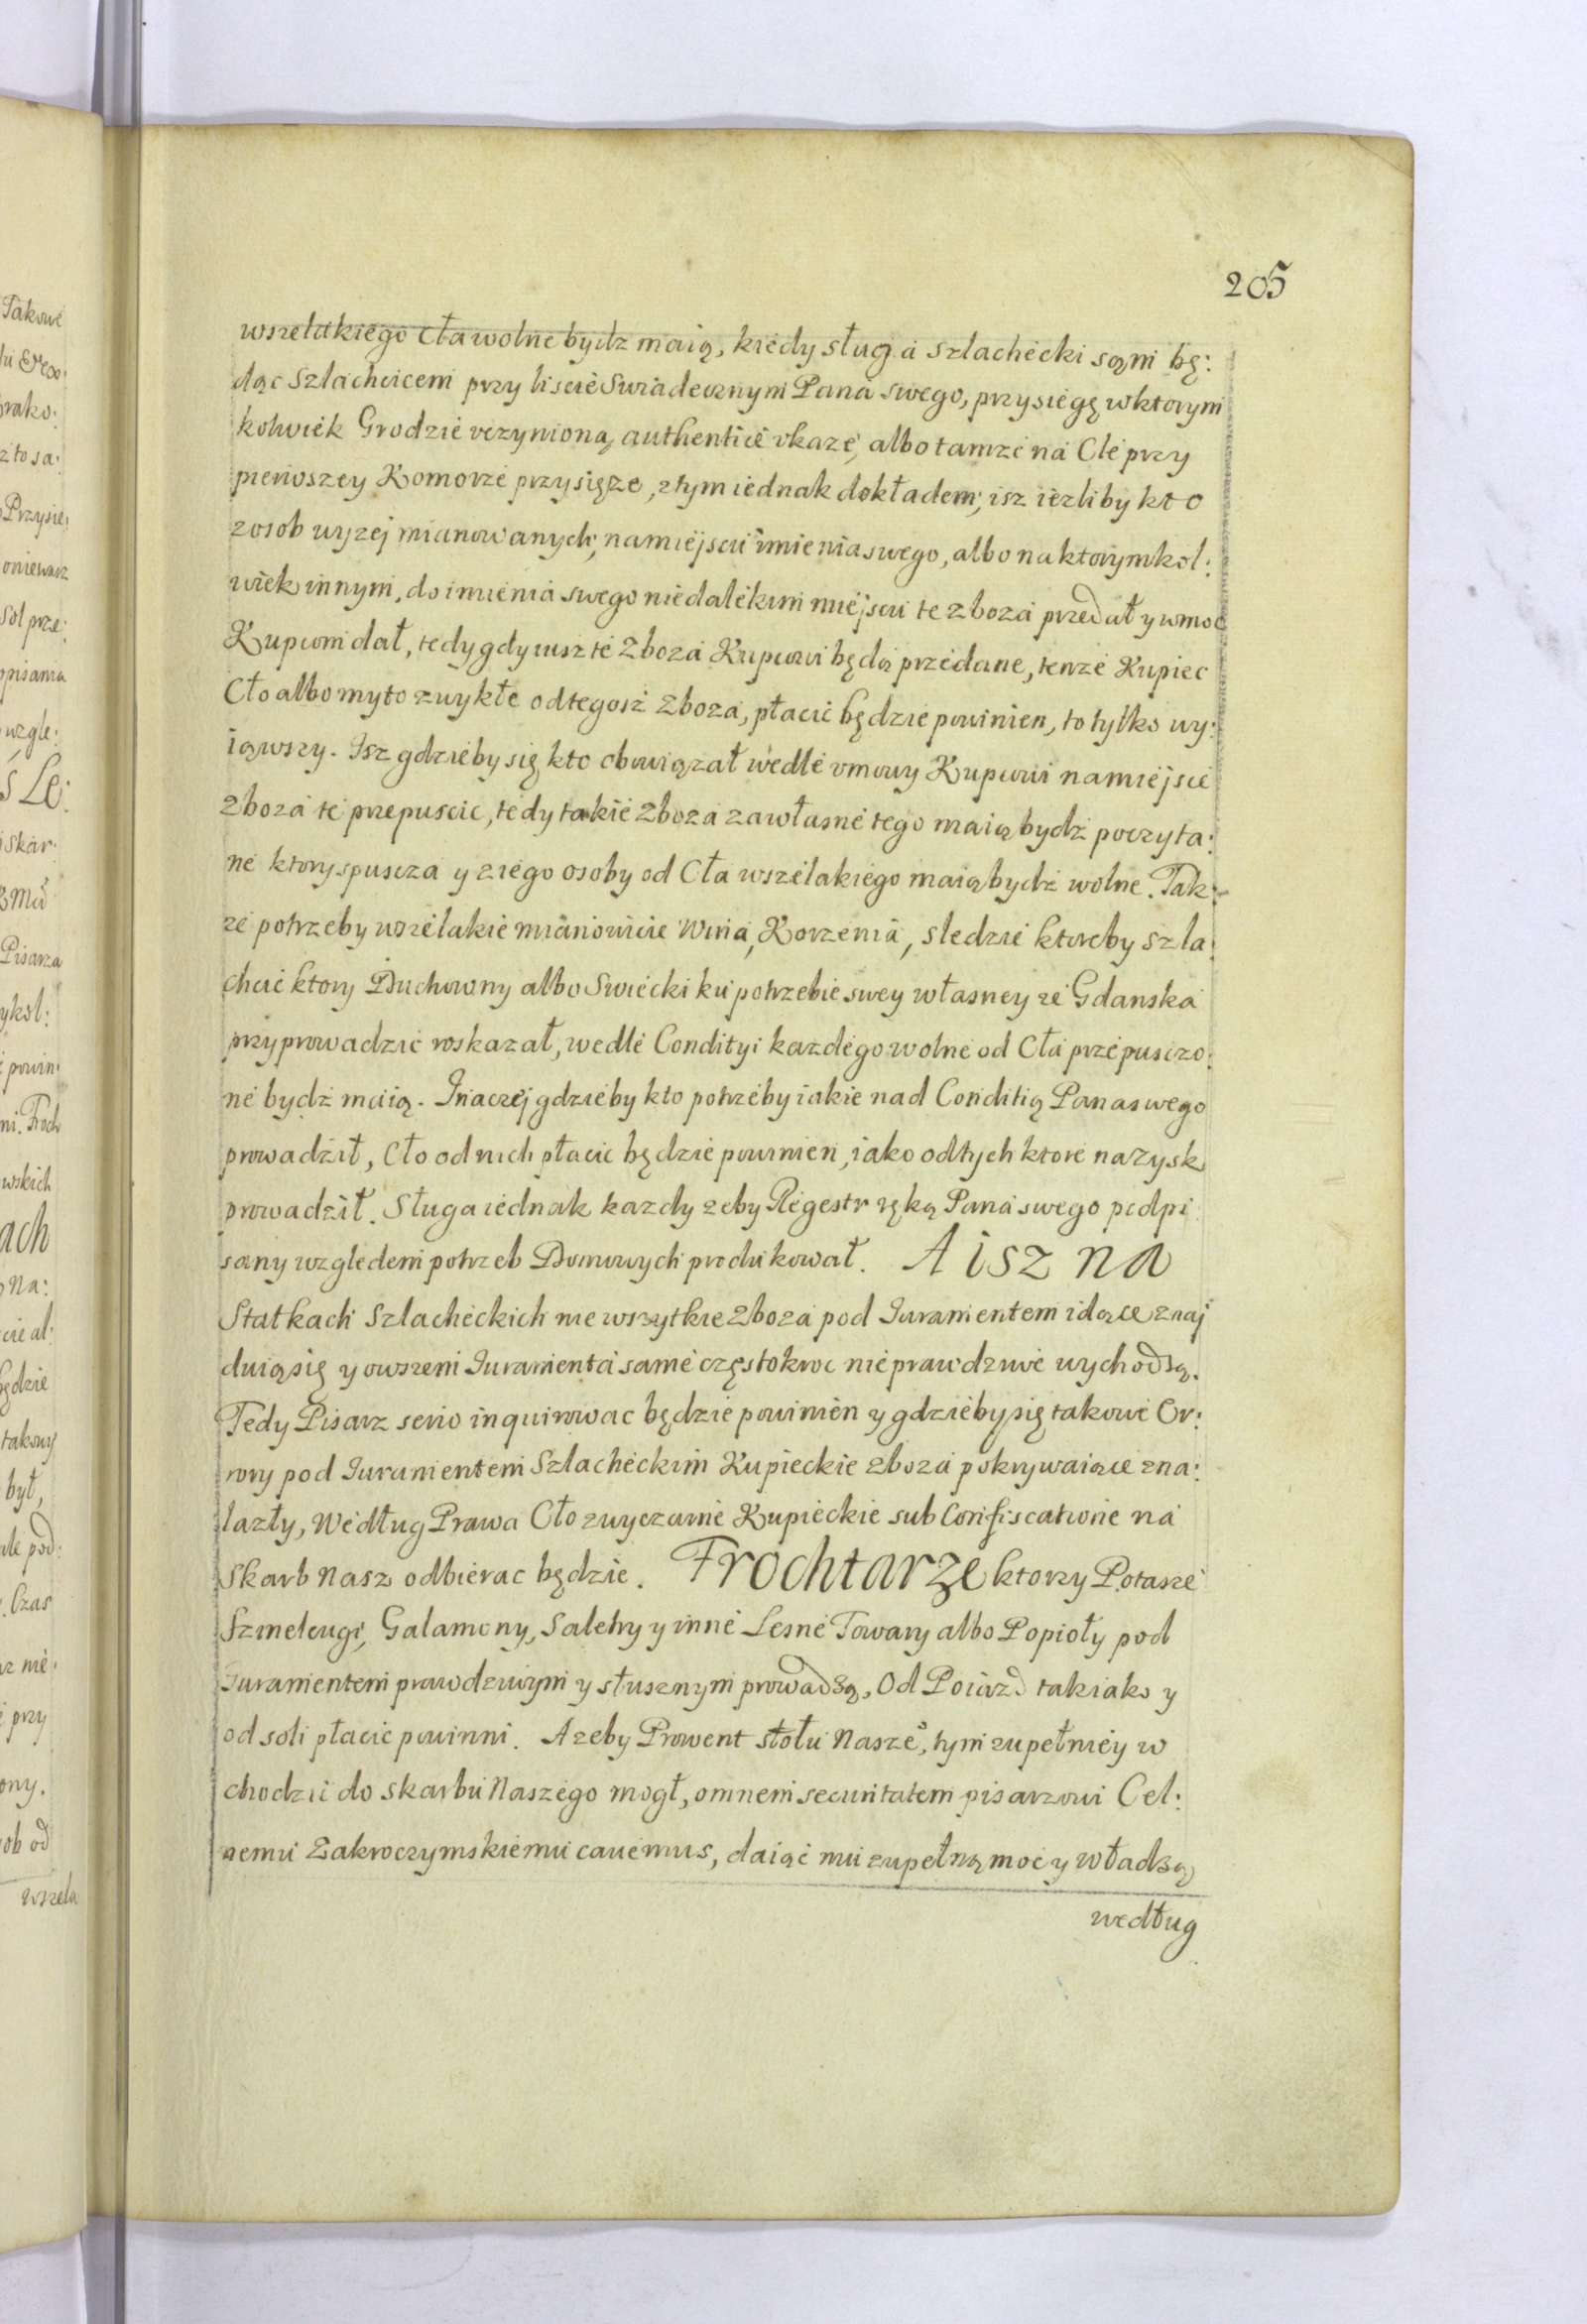 205
wszelakiego Cła wolne bydz maią, kiedy sługa szlachecki sąm bę:
dąc szlachcicem przy liscie swiadecznym Pana swego, przysięgę w ktorym
kolwiek Grodzie vczynioną authentice vkaze, albo tamze na Cle przy
pierwszey Komorze przysięze, z tym iednak dokładem, isz iezliby kto
z osob wyzej mianowanych, na miejscu imienia swego, albo na ktorymkol:
wiek innym, do imienia swego niedalekim miejscu te zboza przedał y w moc
Kupcom dał, tedy gdy iusz te zboza Kupcowi będą przedane, tenze Kupiec
Cło albo myto zwykłe od tegosz zboza, płacic będzie powinien, to tylko wy:
iąwszy. Isz gdzieby się kto obowiązał wedle vmowy Kupcowi na miejsce
zboza te przepuscic, tedy takie zboza za własne tego maią bydz poczyta:
ne ktory spuscza y z iego osoby od Cła wszelakiego maią bydz wolne. Tak:
ze potrzeby wszelakie mianowicie Wina, Korzenia, sledzie ktoreby szla:
chcic ktory Duchowny albo Swiecki ku potrzebie swey własney ze Gdanska
przyprowadzic roskazał, wedle Condityi kazdego wolne od Cła przepusczo:
ne bydz maią. Inaczej gdzieby kto potrzeby iakie nad Conditią Pana swego
prowadził, Cło od nich płacic będzie powinien, iako od tych ktore na zysk
prowadził. Sługa iednak kazdy zeby Regestr ręką Pana swego podpi
sany względem potrzeb Domowych produkował. A isz na
Statkach Szlacheckich nie wszytkie zboza pod Iuramentem idące znaj
duią się y owszem Iuramenta same częstokroc nieprawdziwe wychodzą.
Tedy Pisarz serio inquirowac będzie powinien y gdzieby się takowe Or:
rory pod Iuramentem Szlacheckim Kupieckie zboza pokrywaiące zna:
lazły, Według Prawa Cło zwyczaine Kupieckie sub Confiscatione na
Skarb Nasz odbierac będzie. Frochtarze ktorzy Potasze
Szmelcugi, Galamony, Saletry y inne Lesne Towary albo Popioły pod
Iuramentem prawdziwym y słusznym prowadzą, Od Poiazd tak iako y
od soli płacic powinni. A zeby Prowent stołu Nasze°, tym zupełniey w
chodzic do skarbu Naszego mogł, omnem securitatem pisarzowi Cel:
nemu Zakroczymskiemu cauemus, daiąc mu zupełną moc y władzą
według
Takowe
prako:
z to sa:
Przysie:
oniewasz
Sol prze:
opisania
wzgle:
Skar:
Pisarza
ykol:
powin:
wskich
ach
Na:
cie al:
będzie
takowy
był,
ale pod:
Czas
przy
ony.
ob od
wszela